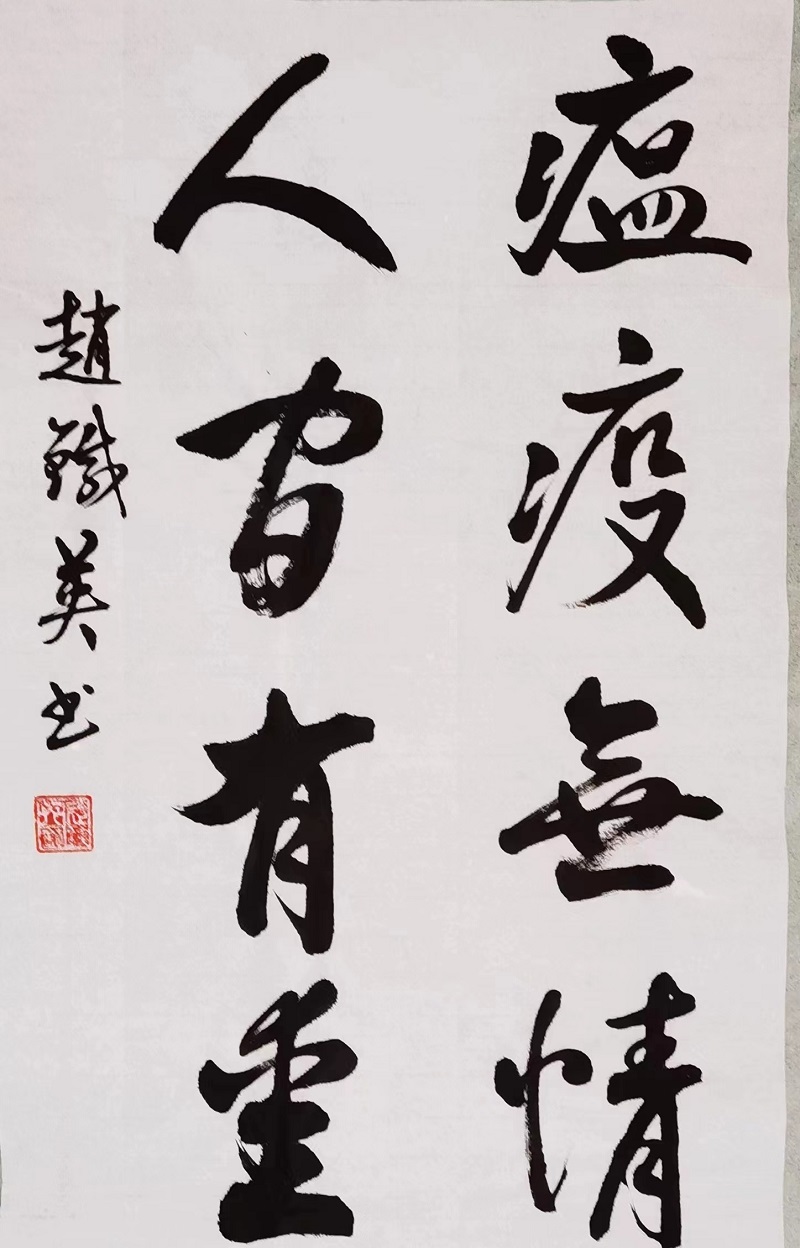 瘟疫無情
人間有
趙鐵英书